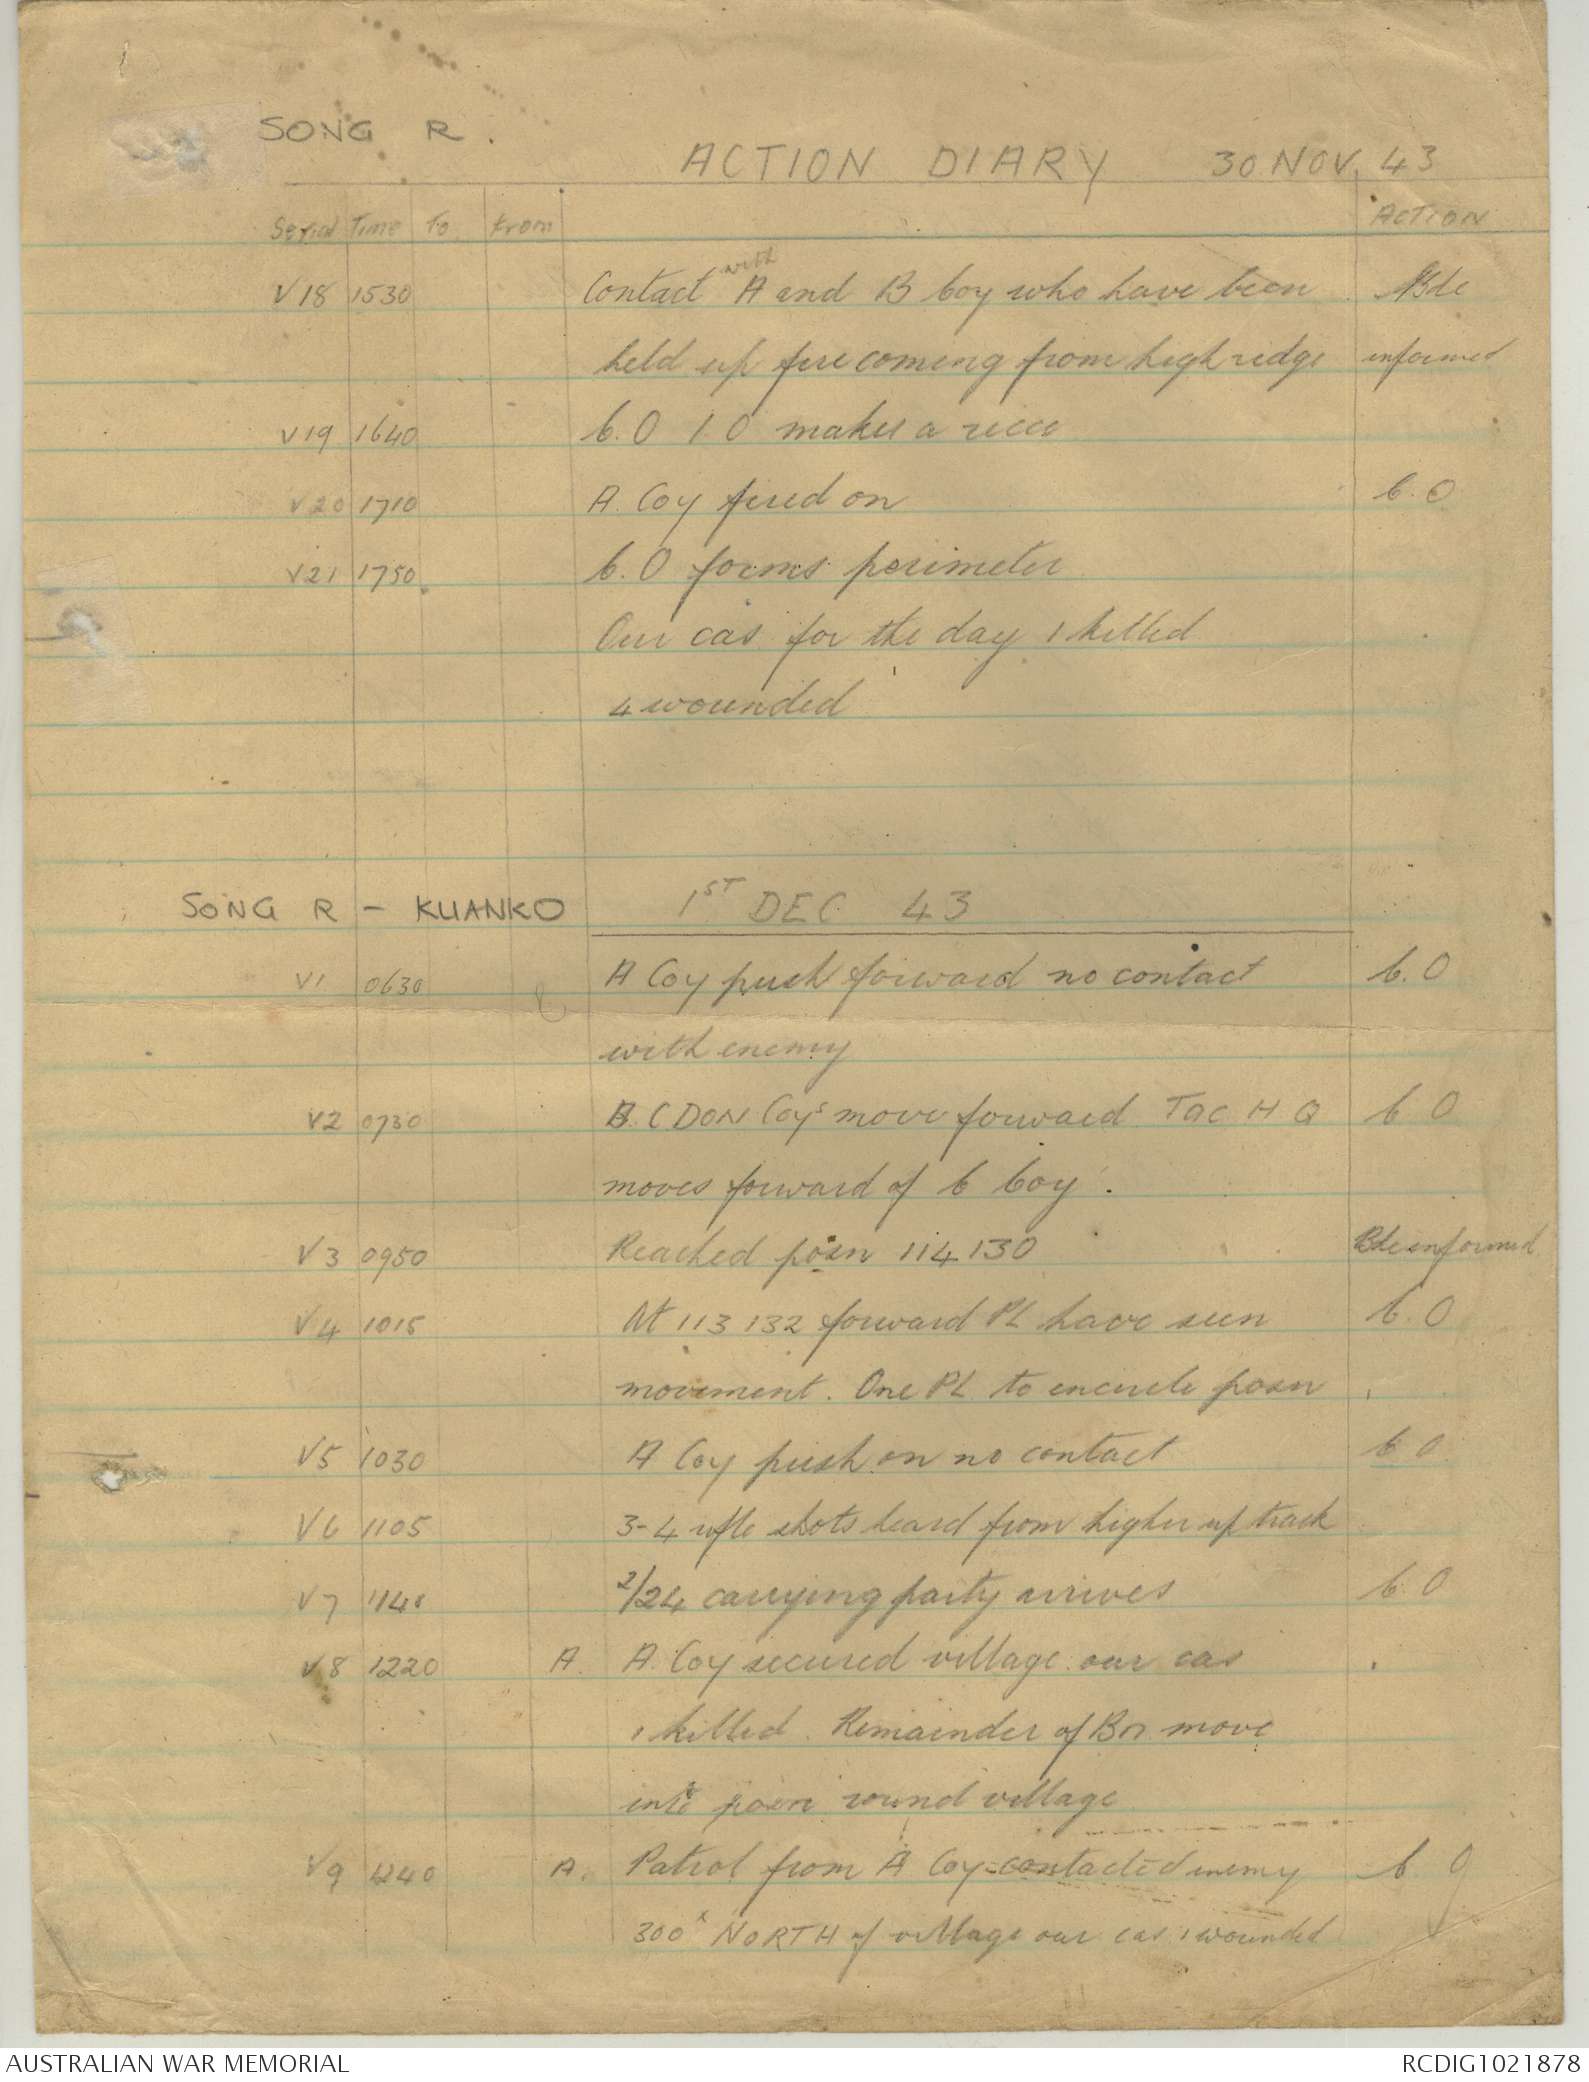 SONG R.
ACTION DIARY 30 NOV. 43
Serial Time To From ACTION
V18 1530 Contact with A and B Coy who have been Bde
held up fire coming from high ridge informed
V19 1640 C.O I.O makes a recce
V20 1710 A. Coy fired on C.O
V21 1750 C.O forms perimeter
Our cas for the day 1 killed
4 wounded
SONG R - KUANKO 1ST DEC 43
V1 0630 A Coy push forward no contact C.O
with enemy
V2 0730 B. C DON Coys move forward Tac H Q C O
moves forward of C Coy.
V3 0950 Reached posn 114130 Bde informed
V4 1015 At 113132 forward PL have seen C.O
movement. One PL to encircle posn
V5 1030 A Coy push on no contact C O
V6 1105 3-4 rifle shots heard from higher up track
V7 1148 2/24 carrying party arrives C.O
V8 1220 A. A. Coy secured village our cas
1 killed. Remainder of Bn move
into posn round village
V9 1240 A. Patrol from A Coy contacted enemy C. O
300x NORTH of village our cas 1 wounded
AUSTRALIAN WAR MEMORIAL RCDIG1021878